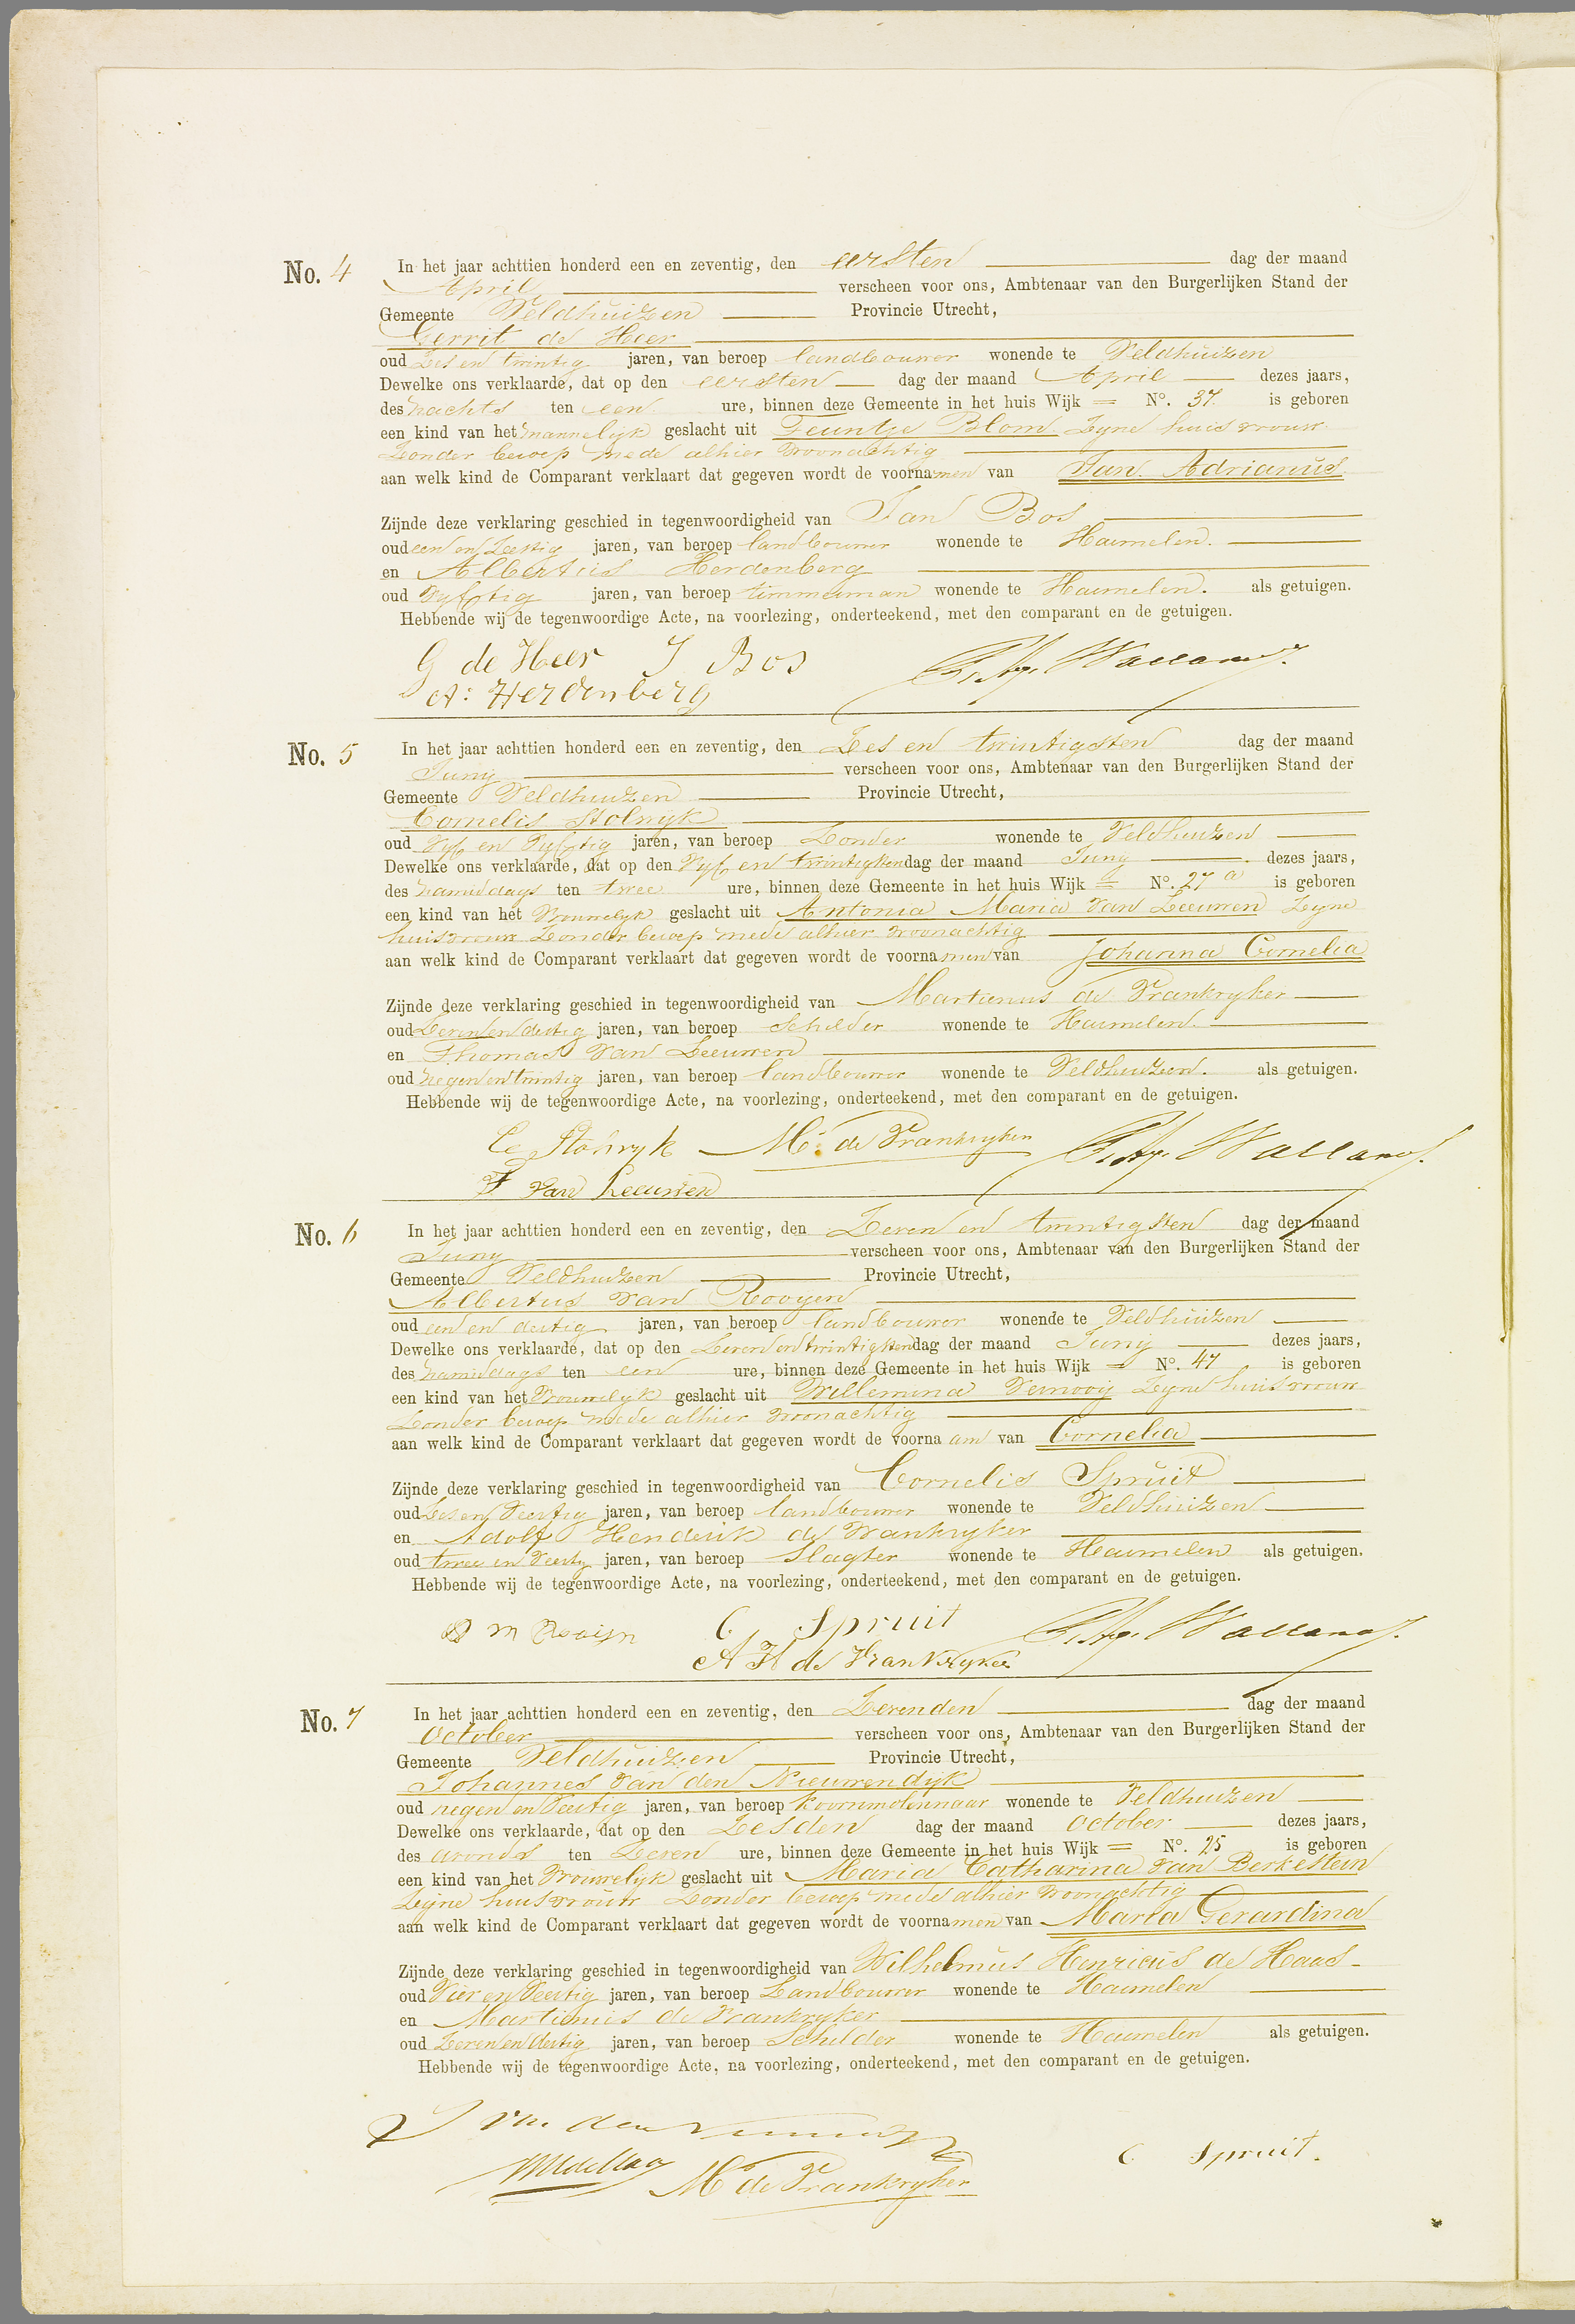 No. 4 In het jaar achttien honderd een en zeventig, den eersten dag der maand
April verscheen voor ons, Ambtenaar van den Burgerlijken Stand der
Gemeente Veldhuizen Provincie Utrecht,
Gerrit de Heer
oud Zes en twintig jaren, van beroep landbouwer wonende te Veldhuizen
Dewelke ons verklaarde, dat op den eersten dag der maand April dezes jaars,
des nachts ten een ure, binnen deze Gemeente in het huis Wijk = No. 37. is geboren
een kind van het mannelijk geslacht uit Teuntje Blom Zyne huisvrouw
Zonder beroep mede alhier woonachtig
aan welk kind de Comparant verklaart dat gegeven wordt de voornamen van Jan Adrianus
Zijnde deze verklaring geschied in tegenwoordigheid van Jan Bos
oud een en Zestig jaren, van beroep landbouwer wonende te Harmelen.
en Albertus Herdenberg
oud Vyftig jaren, van beroep timmerman wonende te Harmelen. als getuigen.
Hebbende wij de tegenwoordige Acte, na voorlezing, onderteekend, met den comparant en de getuigen.
G de Heer J Bos
A: Herdenberg
No. 5 In het jaar achttien honderd een en zeventig, den Zes en twintigsten dag der maand
Juny verscheen voor ons, Ambtenaar van den Burgerlijken Stand der
Gemeente Veldhuizen Provincie Utrecht,
Cornelis Stolwyk
oud Vyf en Vyftig jaren, van beroep Zonder wonende te Veldhuizen
Dewelke ons verklaarde, dat op den Vyf en twintigsten dag der maand Juny dezes jaars,
des namiddags ten twee ure, binnen deze Gemeente in het huis Wijk = No. 27 a is geboren
een kind van het Vrouwelyk geslacht uit Antonia Maria van Leeuwen Zyne
huisvrouw Zonder beroep mede alhier woonachtig
aan welk kind de Comparant verklaart dat gegeven wordt de voornamen van Johanna Cornelia
Zijnde deze verklaring geschied in tegenwoordigheid van Martienus de Frankryker
oud Zeven en dertig jaren, van beroep Schilder wonende te Harmelen.
en Thomas van Leeuwen
oud negen en twintig jaren, van beroep landbouwer wonende te Veldhuizen. als getuigen.
Hebbende wij de tegenwoordige Acte, na voorlezing, onderteekend, met den comparant en de getuigen.
M. de Frankryker
T van Leeuwen
No. 6 In het jaar achttien honderd een en zeventig, den Zeven en twintigsten dag der maand
Juny verscheen voor ons, Ambtenaar van den Burgerlijken Stand der
Gemeente Veldhuizen Provincie Utrecht,
Albertus van Rooyen
oud een en dertig jaren, van beroep landbouwer wonende te Veldhuizen
Dewelke ons verklaarde, dat op den Zeven en twintigsten dag der maand Juny dezes jaars,
des namiddags ten een ure, binnen deze Gemeente in het huis Wijk = No. 47 is geboren
een kind van het Vrouwelyk geslacht uit Willemina Vernooij Zyne huisvrouw
Zonder beroep mede alhier woonachtig
aan welk kind de Comparant verklaart dat gegeven wordt de voornaam van Cornelia
Zijnde deze verklaring geschied in tegenwoordigheid van Cornelis Spruit
oud Zes en Veertig jaren, van beroep landbouwer wonende te Veldhuizen
en Adolf Henderik de Frankryker
oud twee en Veertig jaren, van beroep Slagter wonende te Harmelen als getuigen.
Hebbende wij de tegenwoordige Acte, na voorlezing, onderteekend, met den comparant en de getuigen.
C Spruit
A H de Frankryker
No. 7 In het jaar achttien honderd een en zeventig, den Zevenden dag der maand
October verscheen voor ons, Ambtenaar van den Burgerlijken Stand der
Gemeente Veldhuizen Provincie Utrecht,
Johannes van den Nieuwendijk
oud negen en Veertig jaren, van beroep koornmolennaar wonende te Veldhuizen
Dewelke ons verklaarde, dat op den Zesden dag der maand October dezes jaars,
des avonds ten Zeven ure, binnen deze Gemeente in het huis Wijk = No. 25 is geboren
een kind van het Vrouwelyk geslacht uit Maria Catharina van Berkestein
Zyne huisvrouw Zonder beroep mede alhier woonachtig
aan welk kind de Comparant verklaart dat gegeven wordt de voornamen van Maria Gerardina
Zijnde deze verklaring geschied in tegenwoordigheid van Wilhelmus Henricus de Haas
oud Vier en Veertig jaren, van beroep Landbouwer wonende te Harmelen
en Martienus de Frankryker
oud Zeven en dertig jaren, van beroep Schilder wonende te Harmelen als getuigen.
Hebbende wij de tegenwoordige Acte, na voorlezing, onderteekend, met den comparant en de getuigen.
C Spruit.
M de Frankryker